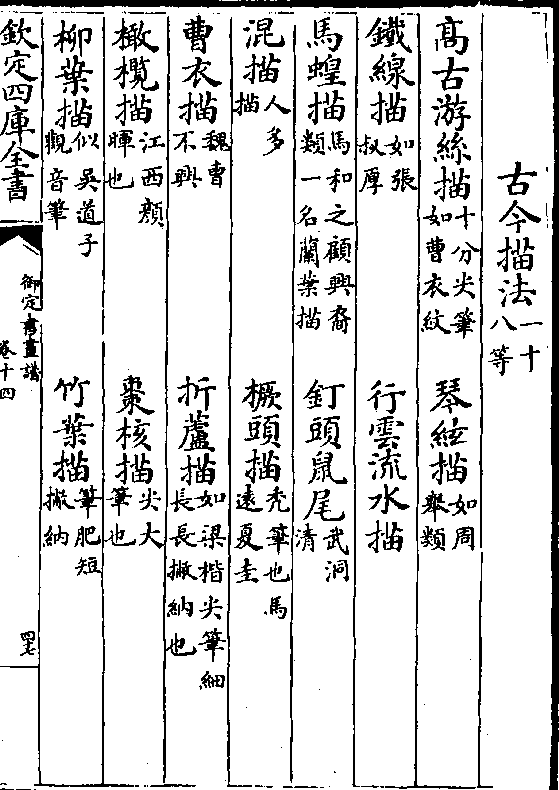 古今描法一十八等
高古游絲描十分尖筆如曹衣紋　琴絃描如周舉類
鐵線描如張叔厚　行雲流水描
馬蝗描馬和之顧興裔類一名蘭葉描　釘頭鼠尾武洞清
混描人多描　橛頭描禿筆也馬遠夏圭
曹衣描魏曹不興　折蘆描如梁楷尖筆細長長撇納也
橄欖描江西顏暉也　棗核描尖大筆也
柳葉描似吳道子觀音筆　竹葉描筆肥短撇納
欽定四庫全書
御定書畫譜
卷十四